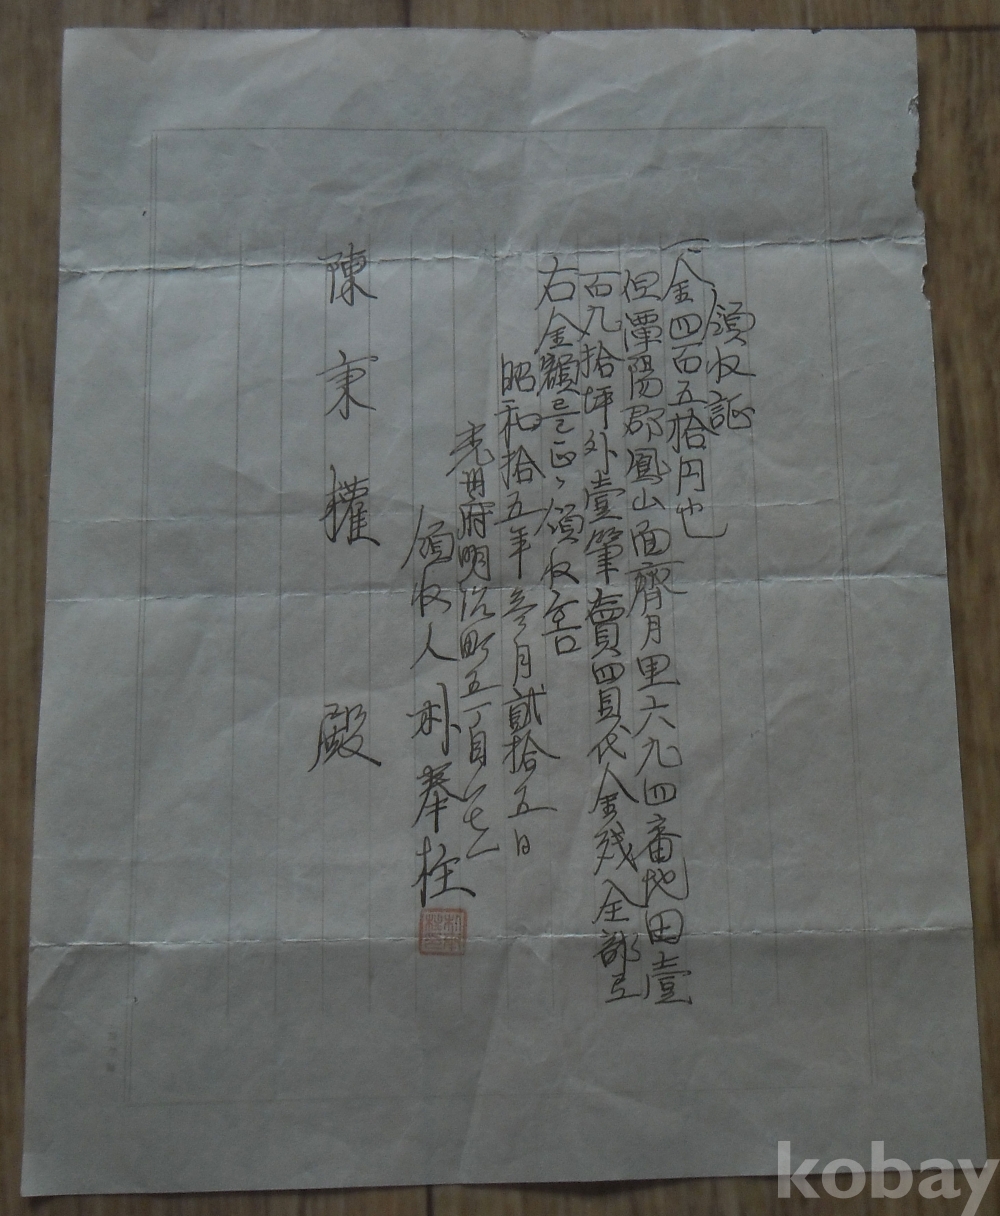 領収証
一金四百五拾円也
但潭陽郡鳳山面齊月里六九四番地田壹
百九拾坪外壹筆賣買代金殘全部
右金額 正 領収
昭和拾五年参月貳拾五日
光州府明治町五丁目
領収人 朴奉柱
陳秉權 殿
kobay